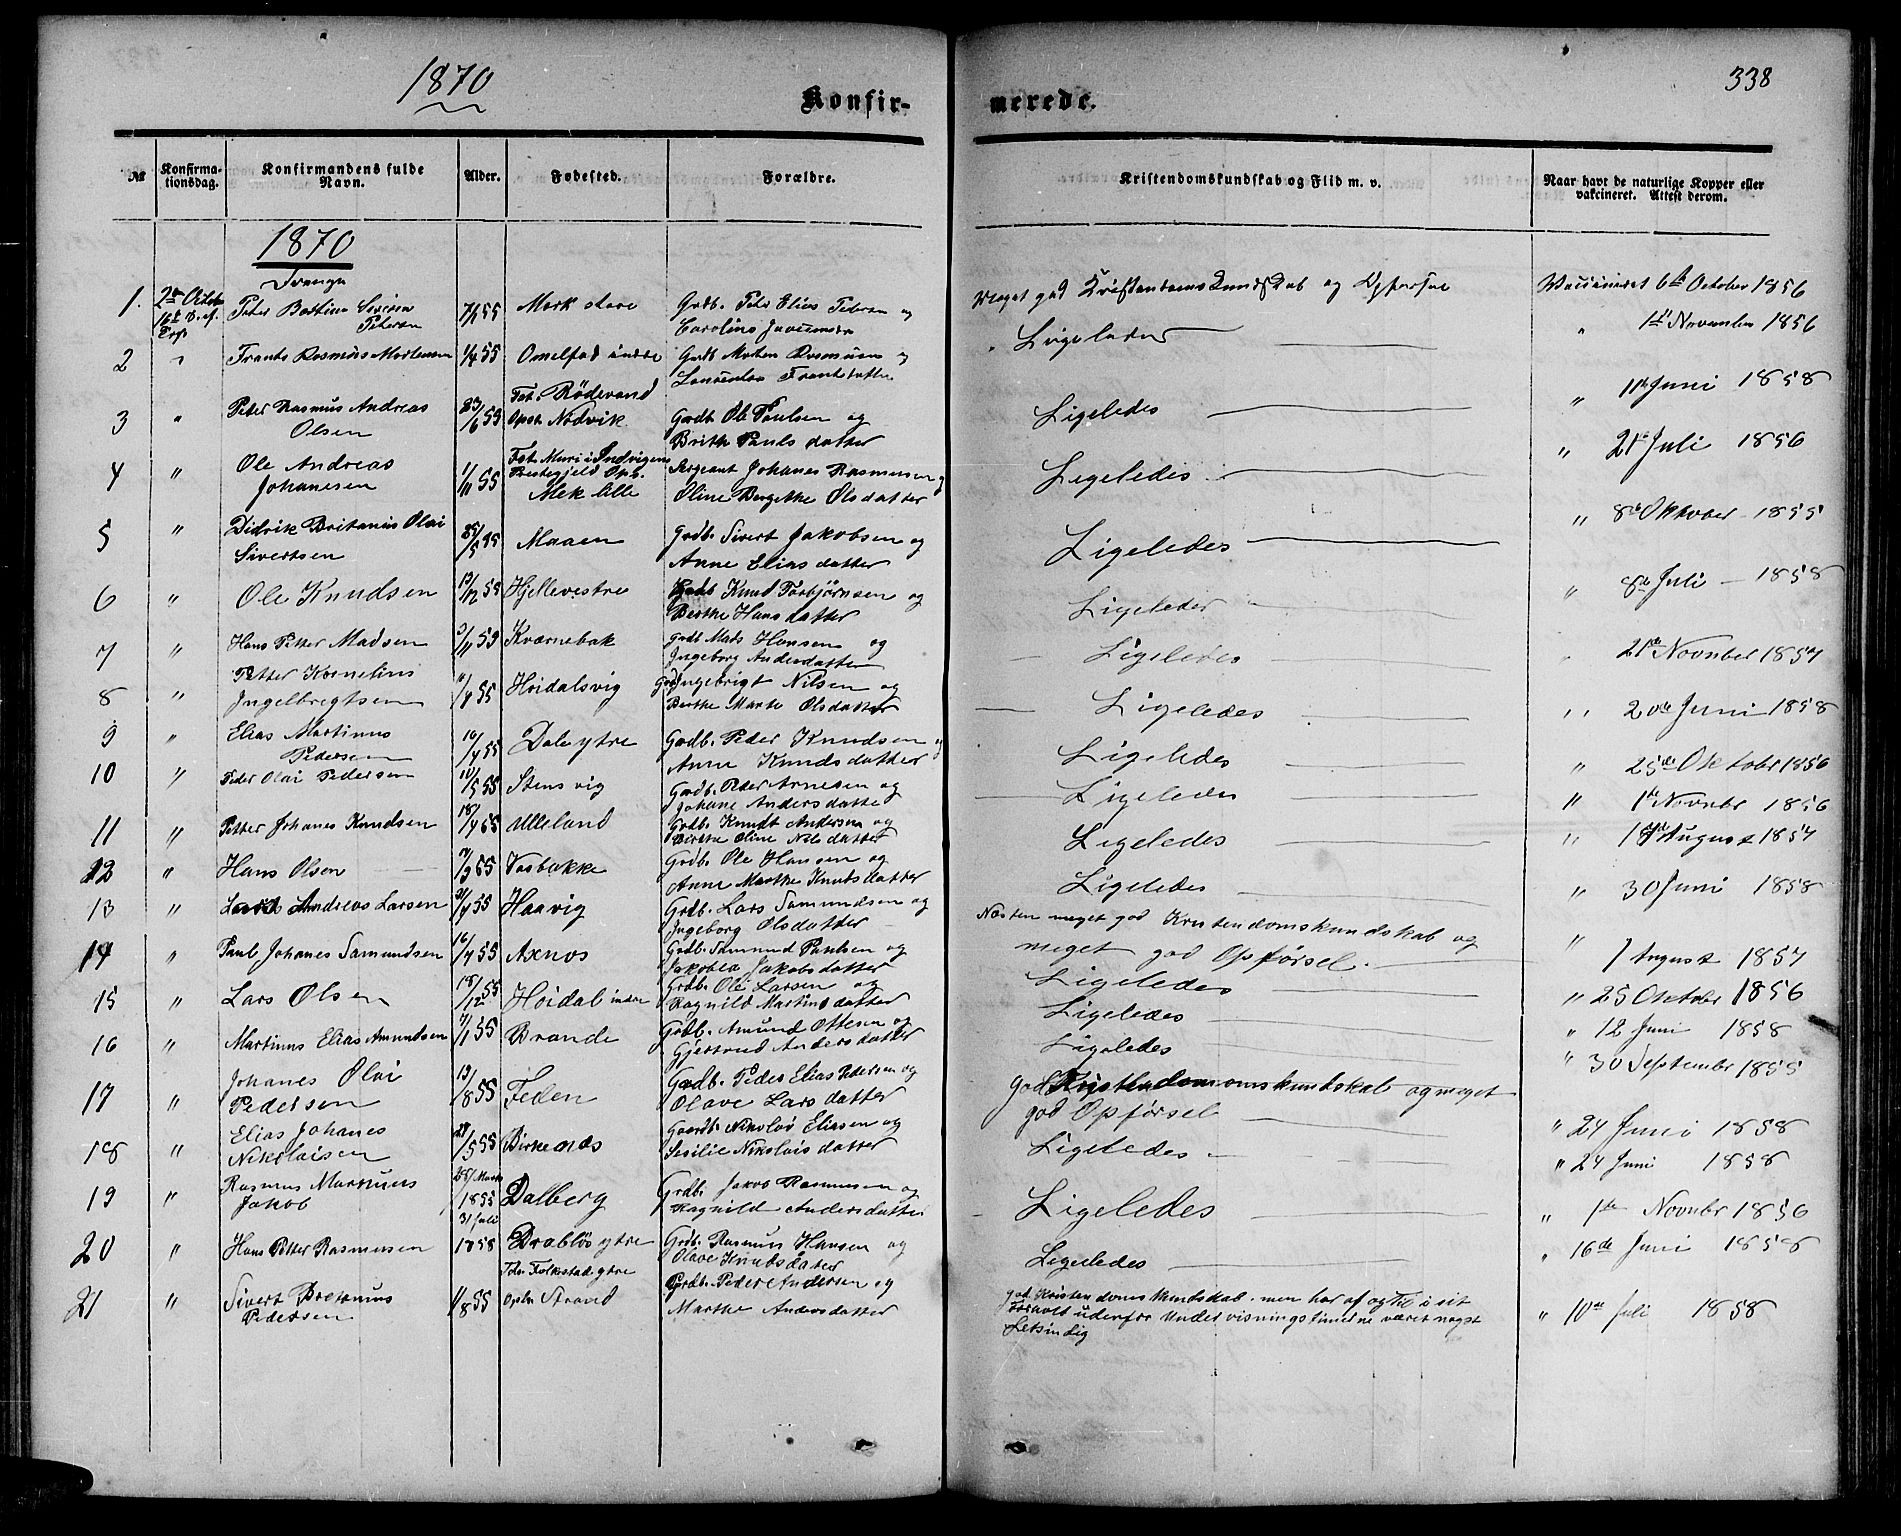 1870
Konfir-
merede.
338
№
Konfirma-
tionsdag.
Konfirmandens fulde
Navn.
Alder.
Fødested.
Forældre.
Kristendomskundskab og Flid m. v.
Naar havt de naturlige Kopper eller
vakcineret. Attest derom.
1870
1.
Peter Bastian
Petersen
7/1 55
Grdb. Peter Elias Petersen og
Meget god Kristendomskundskab og Opførsel
Vaccineret 6te October 1856
2 "
Frants Rasmus Mortensen
1/4 55
Grdb. Morten Rasmusen og
Ligeledes
" 1ste November 1856
3 "
Peter Rasmus Andreas
Olsen
23/6 55
Føt. Rödevand
Opst. Nodvik
Grdb. Ole Paulsen og
Brithe Pauls datter
Ligeledes
" 11te Juni 1858
4 "
Ole Andreas
Johanesen
1/11 55
Føt. Muri i Indvigens
Prestegjeld Ops.
Mek lille
Sergeant Johanes Rasmusen og
Oline Bergithe Olsdatter
Ligeledes
" 21de Juli 1856
5 "
Didrik Britanius Olai
Sivertsen
25/5 55
Maaen
Grdb. Sivert Jakobsen og
Anne Elias datter
Ligeledes
" 8de Oktober 1855
6 "
Ole Knudsen
13/12 55
Hjellevestre
Grdb Knud Torbjørnsen og
Berthe Hans datter
Ligeledes
" 8de Juli 1858
7 "
Hans Petter Madsen
3/11 55
Kværnebak
Grdb Mads Hansen og
Ingeborg Andersdatter
Ligeledes
" 21de Novnber 1857
8 "
Petter Kornelius
Ingelbregtsen
11/4 55
Høidalsvig
Grdb Ingebrigt Nilsen og
Berthe Marte Olsdatter
Ligeledes
" 20de Juni 1858
9 "
Elias Martinus
Pedersen
16/4 55
Dale ytre
Grdb. Peder Knudsen og
Anne Knuds datter
Ligeledes
" 25de Oktober 1856
10 "
Peder Olai Pedersen
11/5 55
Stensvig
Grdb. Peder Arnesen og
Johane Anders datte
Ligeledes
" 1ste Novnbr 1856
11 "
Petter Johanes Knudsen
18/4 55
Ulleland
Grdb. Knudt Andersen og
Birthe Oline Nils datter
Ligeledes
" August 1857
12 "
Hans Olsen
Vasbakke
Grdb. Ole Hansen og
Anne Marthe Knuts datter
Ligeledes
" 30 Juni 1858
13 "
Andreas Larsen
21/4 55
Haavig
Grdb. Lars Samundsen og
Ingeborg Olsdatter
Næsten meget god Kristendomskundskab og
meget god Opførsel.
" 1 August 1857
14 "
Paul Johanes Samundsen
16/4 55
Axnes
Grdb. Samund Paulsen og
Jakobea Jakobs datter
Ligeledes
" 25 Oktobr 1856
15 "
Lars Olsen
18/12 55
Höidal indre
Grdb. Ole Larsen og
Ragnild Martins datter
Ligeledes
" 12 Juni 1858
16 "
Martinus Elias Amundsen
7/1 55
Brande
Grdb. Amund Ottesen og
Gjertrud Anders datter
Ligeledes
" 30 Septembr 1855
17 "
Johanes Olai
Pedersen
13/8 55
Feden
Grdb. Peder Elias Pedersen og
Olave Lars datter
god Kristendomskundskab og meget
god Opførsel
" 24 Juni 1858
18 "
Elias Johanes
Nikolaisen
29/5 55
Birkenæs
Gaardb. Nikolai Eliasen og
Sesilie Nikolais datter
Ligeledes
" 24 Juni 1858
19 "
Rasmus Markus
Jakob
28/ Marts
1855
Dalberg
Grdb. Jakob Rasmusen og
Ragnild Andersdatter
Ligeledes
" 1ste Novnbr 1856
20 "
Hans Petter Rasmusen
31 Juli
Drabløs ytre
Grdb. Rasmus Hansen og
Olave Knuds dater
Ligeledes
" 16de Juni 1858
21 "
Sivert
Pedersen
1/8 55
Føt. Folkestad ytre
Opst. Strand
Grdb. Peder Andersen og
Marthe Anders datter
god Kristendoms kundskab. men har af og til i sit
forhold udenfor Undervisningstimerne været noget
Letsindig
" 10de Juli 1858